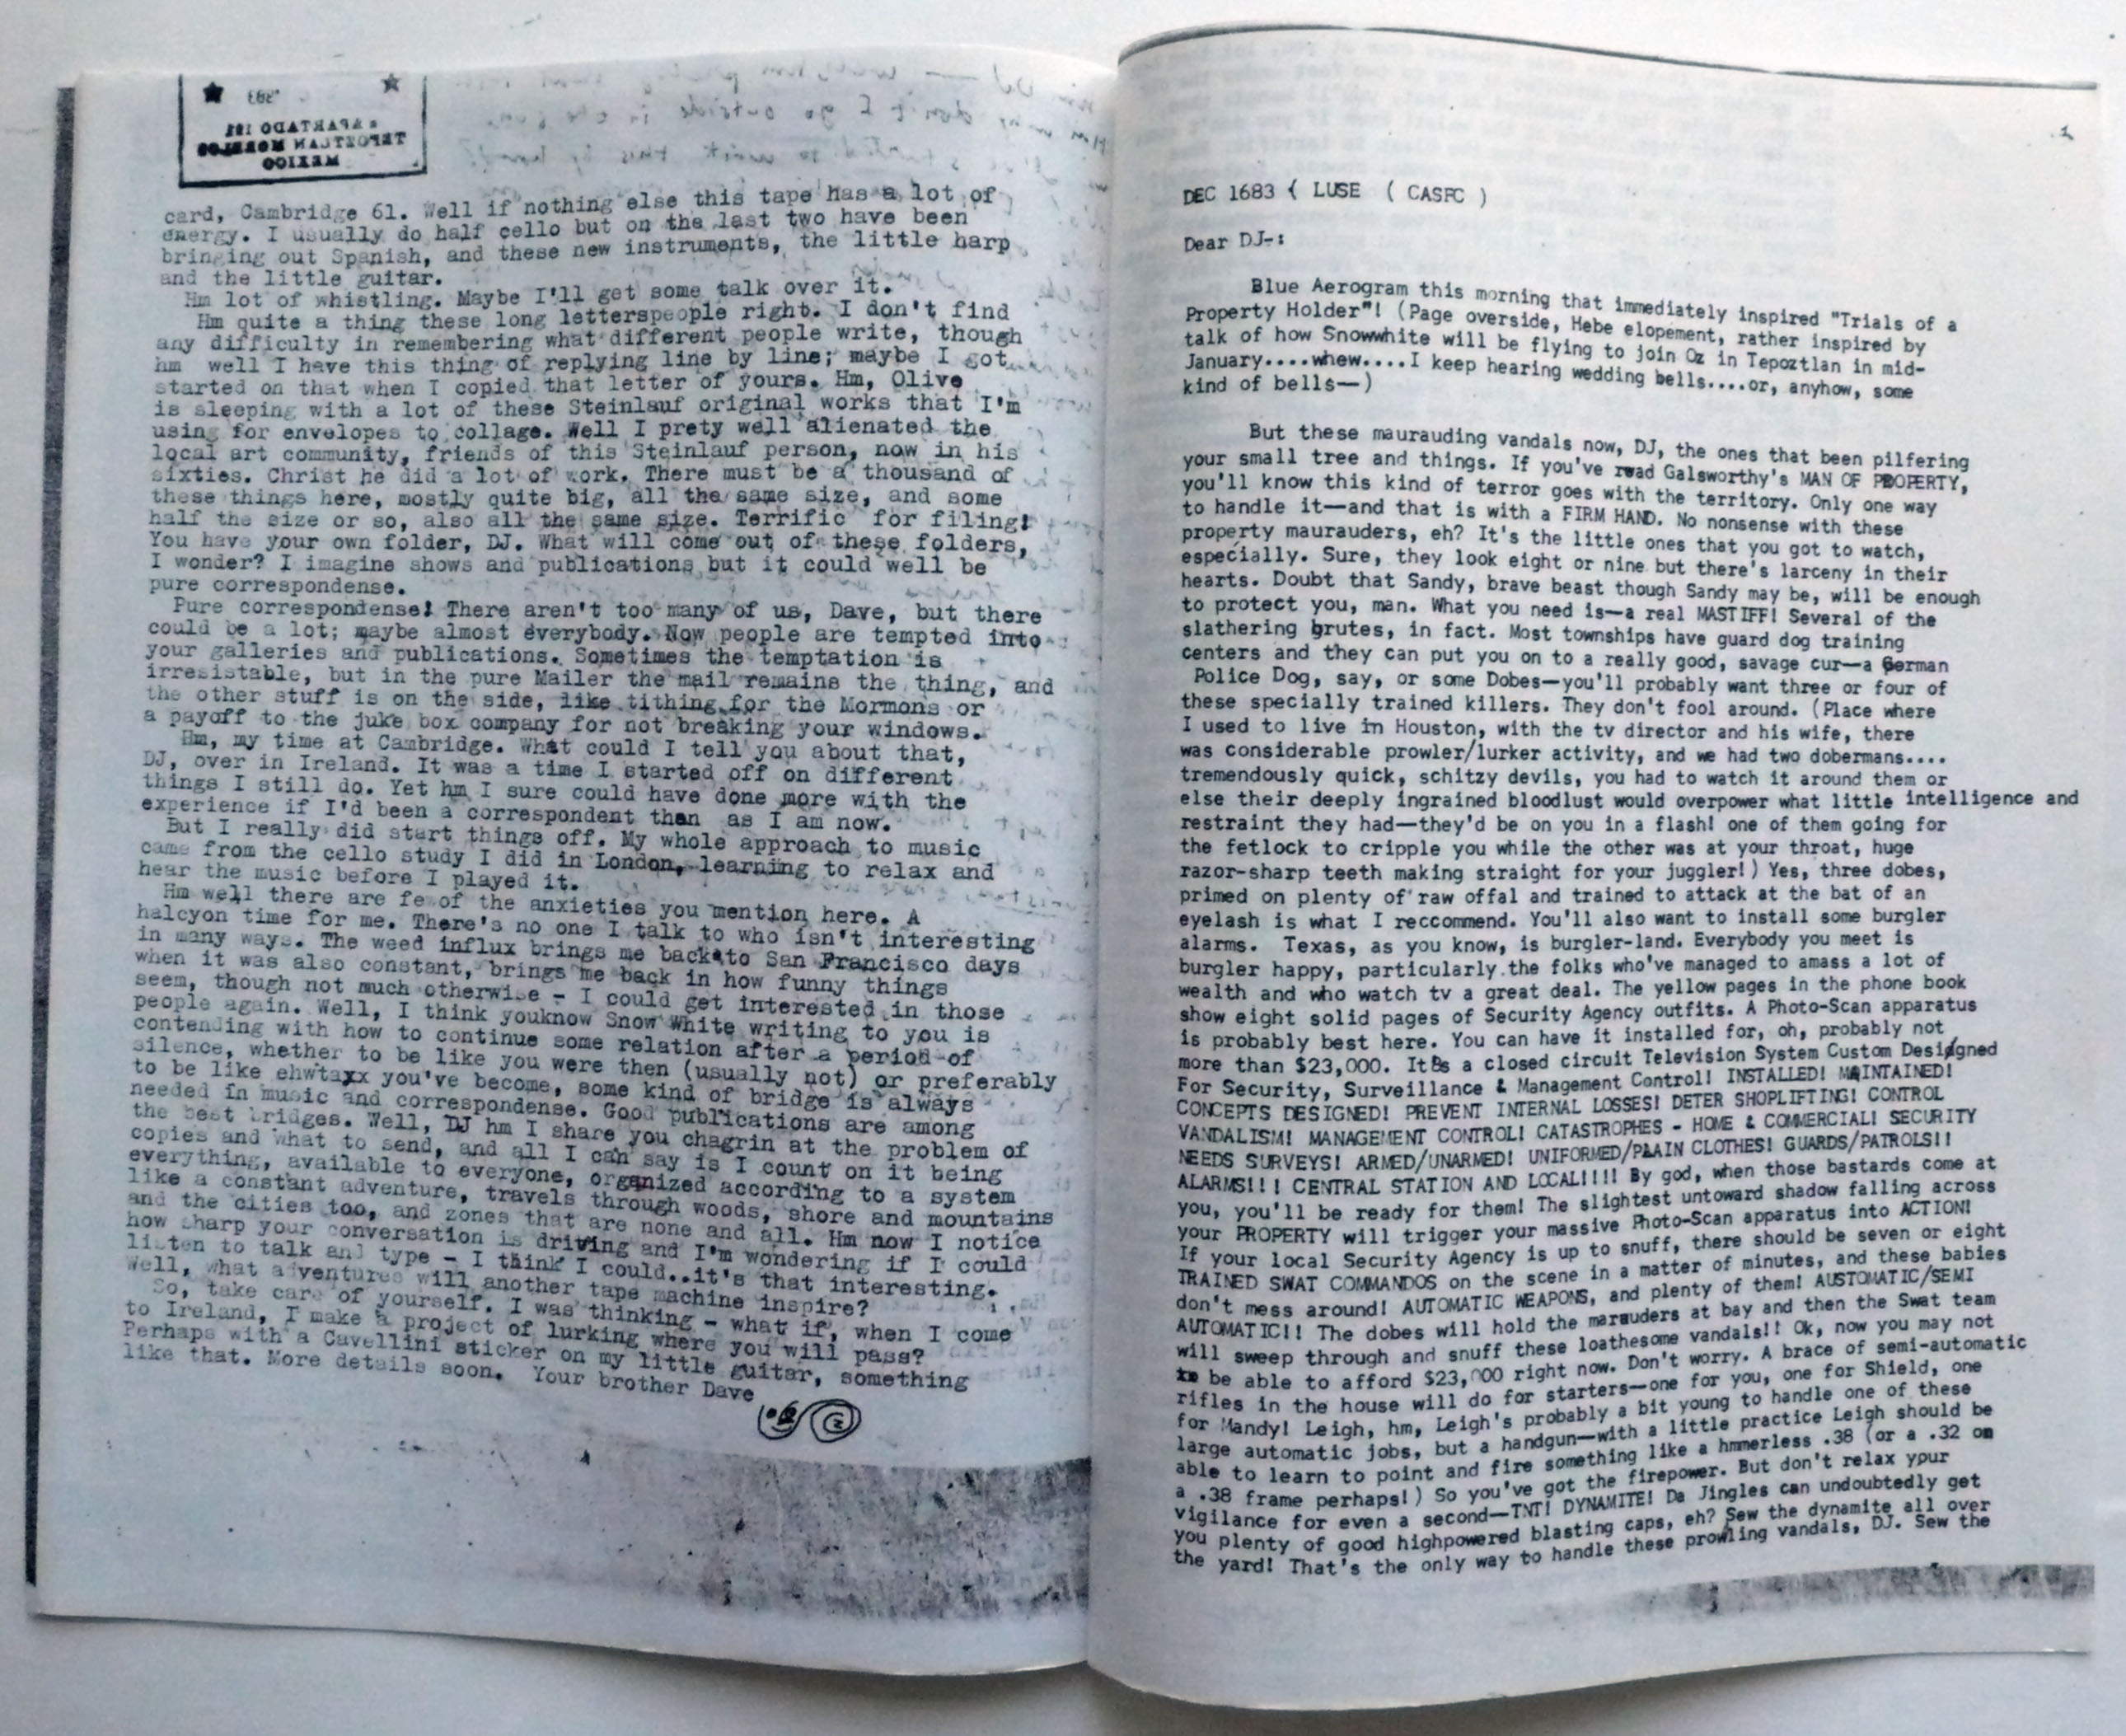 APARTADO 181
TEPOZTLAN MORELOS
MEXICO
card, Cambridge 61. Well if nothing else this tape has a lot of
energy. I usually do half cello but on the last two have been
bringing out Spanish, and these new instruments, the little harp
and the little guitar.
Hm lot of whistling. Maybe I'll get some talk over it.
Hm quite a thing these long letterspeople right. I don't find
any difficulty in remembering what different people write, though
hm well I have this thing of replying line by line; maybe I got
started on that when I copied that letter of yours. Hm, Olive
is sleeping with a lot of these Steinlauf original works that I'm
using for envelopes to collage. Well I prety well alienated the
local art community, friends of this Steinlauf person, now in his
sixties. Christ he did a lot of work. There must be a thousand of
these things here, mostly quite big, all the same size, and some
half the size or so, also all the same size. Terrific for filing!
You have your own folder, DJ. What will come out of these folders,
I wonder? I imagine shows and publications but it could well be
pure correspondense.
Pure correspondense! There aren't too many of us, Dave, but there
could be a lot; maybe almost everybody. Now people are tempted into
your galleries and publications. Sometimes the temptation is
irresistable, but in the pure Mailer the mail remains the thing, and
the other stuff is on the side, like tithing for the Mormons or
a payoff to the juke box company for not breaking your windows.
Hm, my time at Cambridge. What could I tell you about that,
DJ, over in Ireland. It was a time I started off on different
things I still do. Yet hm I sure could have done more with the
experience if I'd been a correspondent then as I am now.
But I really did start things off. My whole approach to music
came from the cello study I did in London, learning to relax and
hear the music before I played it.
Hm well there are fe of the anxieties you mention here. A
halcyon time for me. There's no one I talk to who isn't interesting
in many ways. The weed influx brings me back to San Francisco days
when it was also constant, brings me back in how funny things
seem, though not much otherwise - I could get interested in those
people again. Well, I think youknow Snow White writing to you is
contending with how to continue some relation after a period of
silence, whether to be like you were then (usually not) or preferably
to be like ehwtaxx you've become, some kind of bridge is always
needed in music and correspondense. Good publications are among
the best bridges. Well, DJ hm I share you chagrin at the problem of
copies and what to send, and all I can say is I count on it being
everything, available to everyone, organized according to a system
like a constant adventure, travels through woods, shore and mountains
and the cities too, and zones that are none and all. Hm now I notice
how sharp your conversation is driving and I'm wondering if I could
listen to talk and type - I think I could..it's that interesting.
Well, what adventures will another tape machine inspire?
So, take care of yourself. I was thinking - what if, when I come
to Ireland, I make a project of lurking where you will pass?
Perhaps with a Cavellini sticker on my little guitar, something
like that. More details soon. Your brother Dave
1
DEC 1683 ( LUSE ( CASFC )
Dear DJ-:
Blue Aerogram this morning that immediately inspired "Trials of a
Property Holder"! (Page overside, Hebe elopement, rather inspired by
talk of how Snowwhite will be flying to join Oz in Tepoztlan in mid-
January....whew....I keep hearing wedding bells....or, anyhow, some
kind of bells—)
But these maurauding vandals now, DJ, the ones that been pilfering
your small tree and things. If you've read Galsworthy's MAN OF PROPERTY,
you'll know this kind of terror goes with the territory. Only one way
to handle it—and that is with a FIRM HAND. No nonsense with these
property maurauders, eh? It's the little ones that you got to watch,
especially. Sure, they look eight or nine but there's larceny in their
hearts. Doubt that Sandy, brave beast though Sandy may be, will be enough
to protect you, man. What you need is—a real MASTIFF! Several of the
slathering brutes, in fact. Most townships have guard dog training
centers and they can put you on to a really good, savage cur—a German
Police Dog, say, or some Dobes—you'll probably want three or four of
these specially trained killers. They don't fool around. (Place where
I used to live in Houston, with the tv director and his wife, there
was considerable prowler/lurker activity, and we had two dobermans....
tremendously quick, schitzy devils, you had to watch it around them or
else their deeply ingrained bloodlust would overpower what little intelligence and
restraint they had—they'd be on you in a flash! one of them going for
the fetlock to cripple you while the other was at your throat, huge
razor-sharp teeth making straight for your juggler!) Yes, three dobes,
primed on plenty of raw offal and trained to attack at the bat of an
eyelash is what I reccommend. You'll also want to install some burgler
alarms. Texas, as you know, is burgler-land. Everybody you meet is
burgler happy, particularly the folks who've managed to amass a lot of
wealth and who watch tv a great deal. The yellow pages in the phone book
show eight solid pages of Security Agency outfits. A Photo-Scan apparatus
is probably best here. You can have it installed for, oh, probably not
more than $23,000. It8s a closed circuit Television System Custom Designed
For Security, Surveillance & Management Control! INSTALLED! MAINTAINED!
CONCEPTS DESIGNED! PREVENT INTERNAL LOSSES! DETER SHOPLIFTING! CONTROL
VANDALISM! MANAGEMENT CONTROL! CATASTROPHES - HOME & COMMERCIAL! SECURITY
NEEDS SURVEYS! ARMED/UNARMED! UNIFORMED/PLAIN CLOTHES! GUARDS/PATROLS!!
ALARMS!!! CENTRAL STATION AND LOCAL!!!! By god, when those bastards come at
you, you'll be ready for them! The slightest untoward shadow falling across
your PROPERTY will trigger your massive Photo-Scan apparatus into ACTION!
If your local Security Agency is up to snuff, there should be seven or eight
TRAINED SWAT COMMANDOS on the scene in a matter of minutes, and these babies
don't mess around! AUTOMATIC WEAPONS, and plenty of them! AUSTOMATIC/SEMI
AUTOMATIC!! The dobes will hold the marauders at bay and then the Swat team
will sweep through and snuff these loathesome vandals!! Ok, now you may not
be able to afford $23,000 right now. Don't worry. A brace of semi-automatic
rifles in the house will do for starters—one for you, one for Shield, one
for Mandy! Leigh, hm, Leigh's probably a bit young to handle one of these
large automatic jobs, but a handgun—with a little practice Leigh should be
able to learn to point and fire something like a hmmerless .38 (or a .32 on
a .38 frame perhaps!) So you've got the firepower. But don't relax your
vigilance for even a second—TNT! DYNAMITE! Da Jingles can undoubtedly get
you plenty of good highpowered blasting caps, eh? Sew the dynamite all over
the yard! That's the only way to handle these prowling vandals, DJ. Sew the